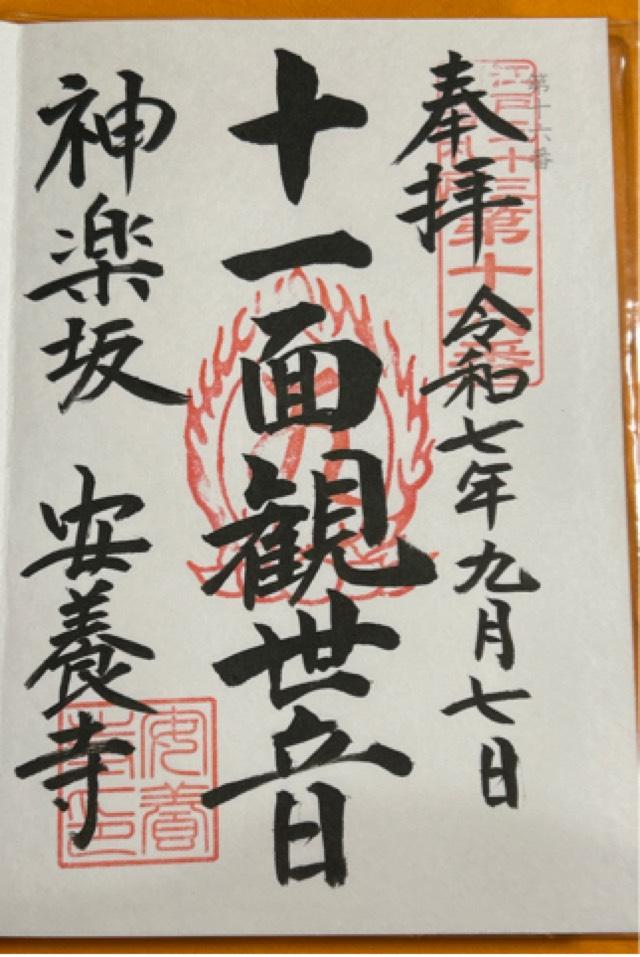 第十六番
江戸三十三
第十六番
奉拝
令和七年九月七日
十一面観世音
神楽坂
安養寺
安養